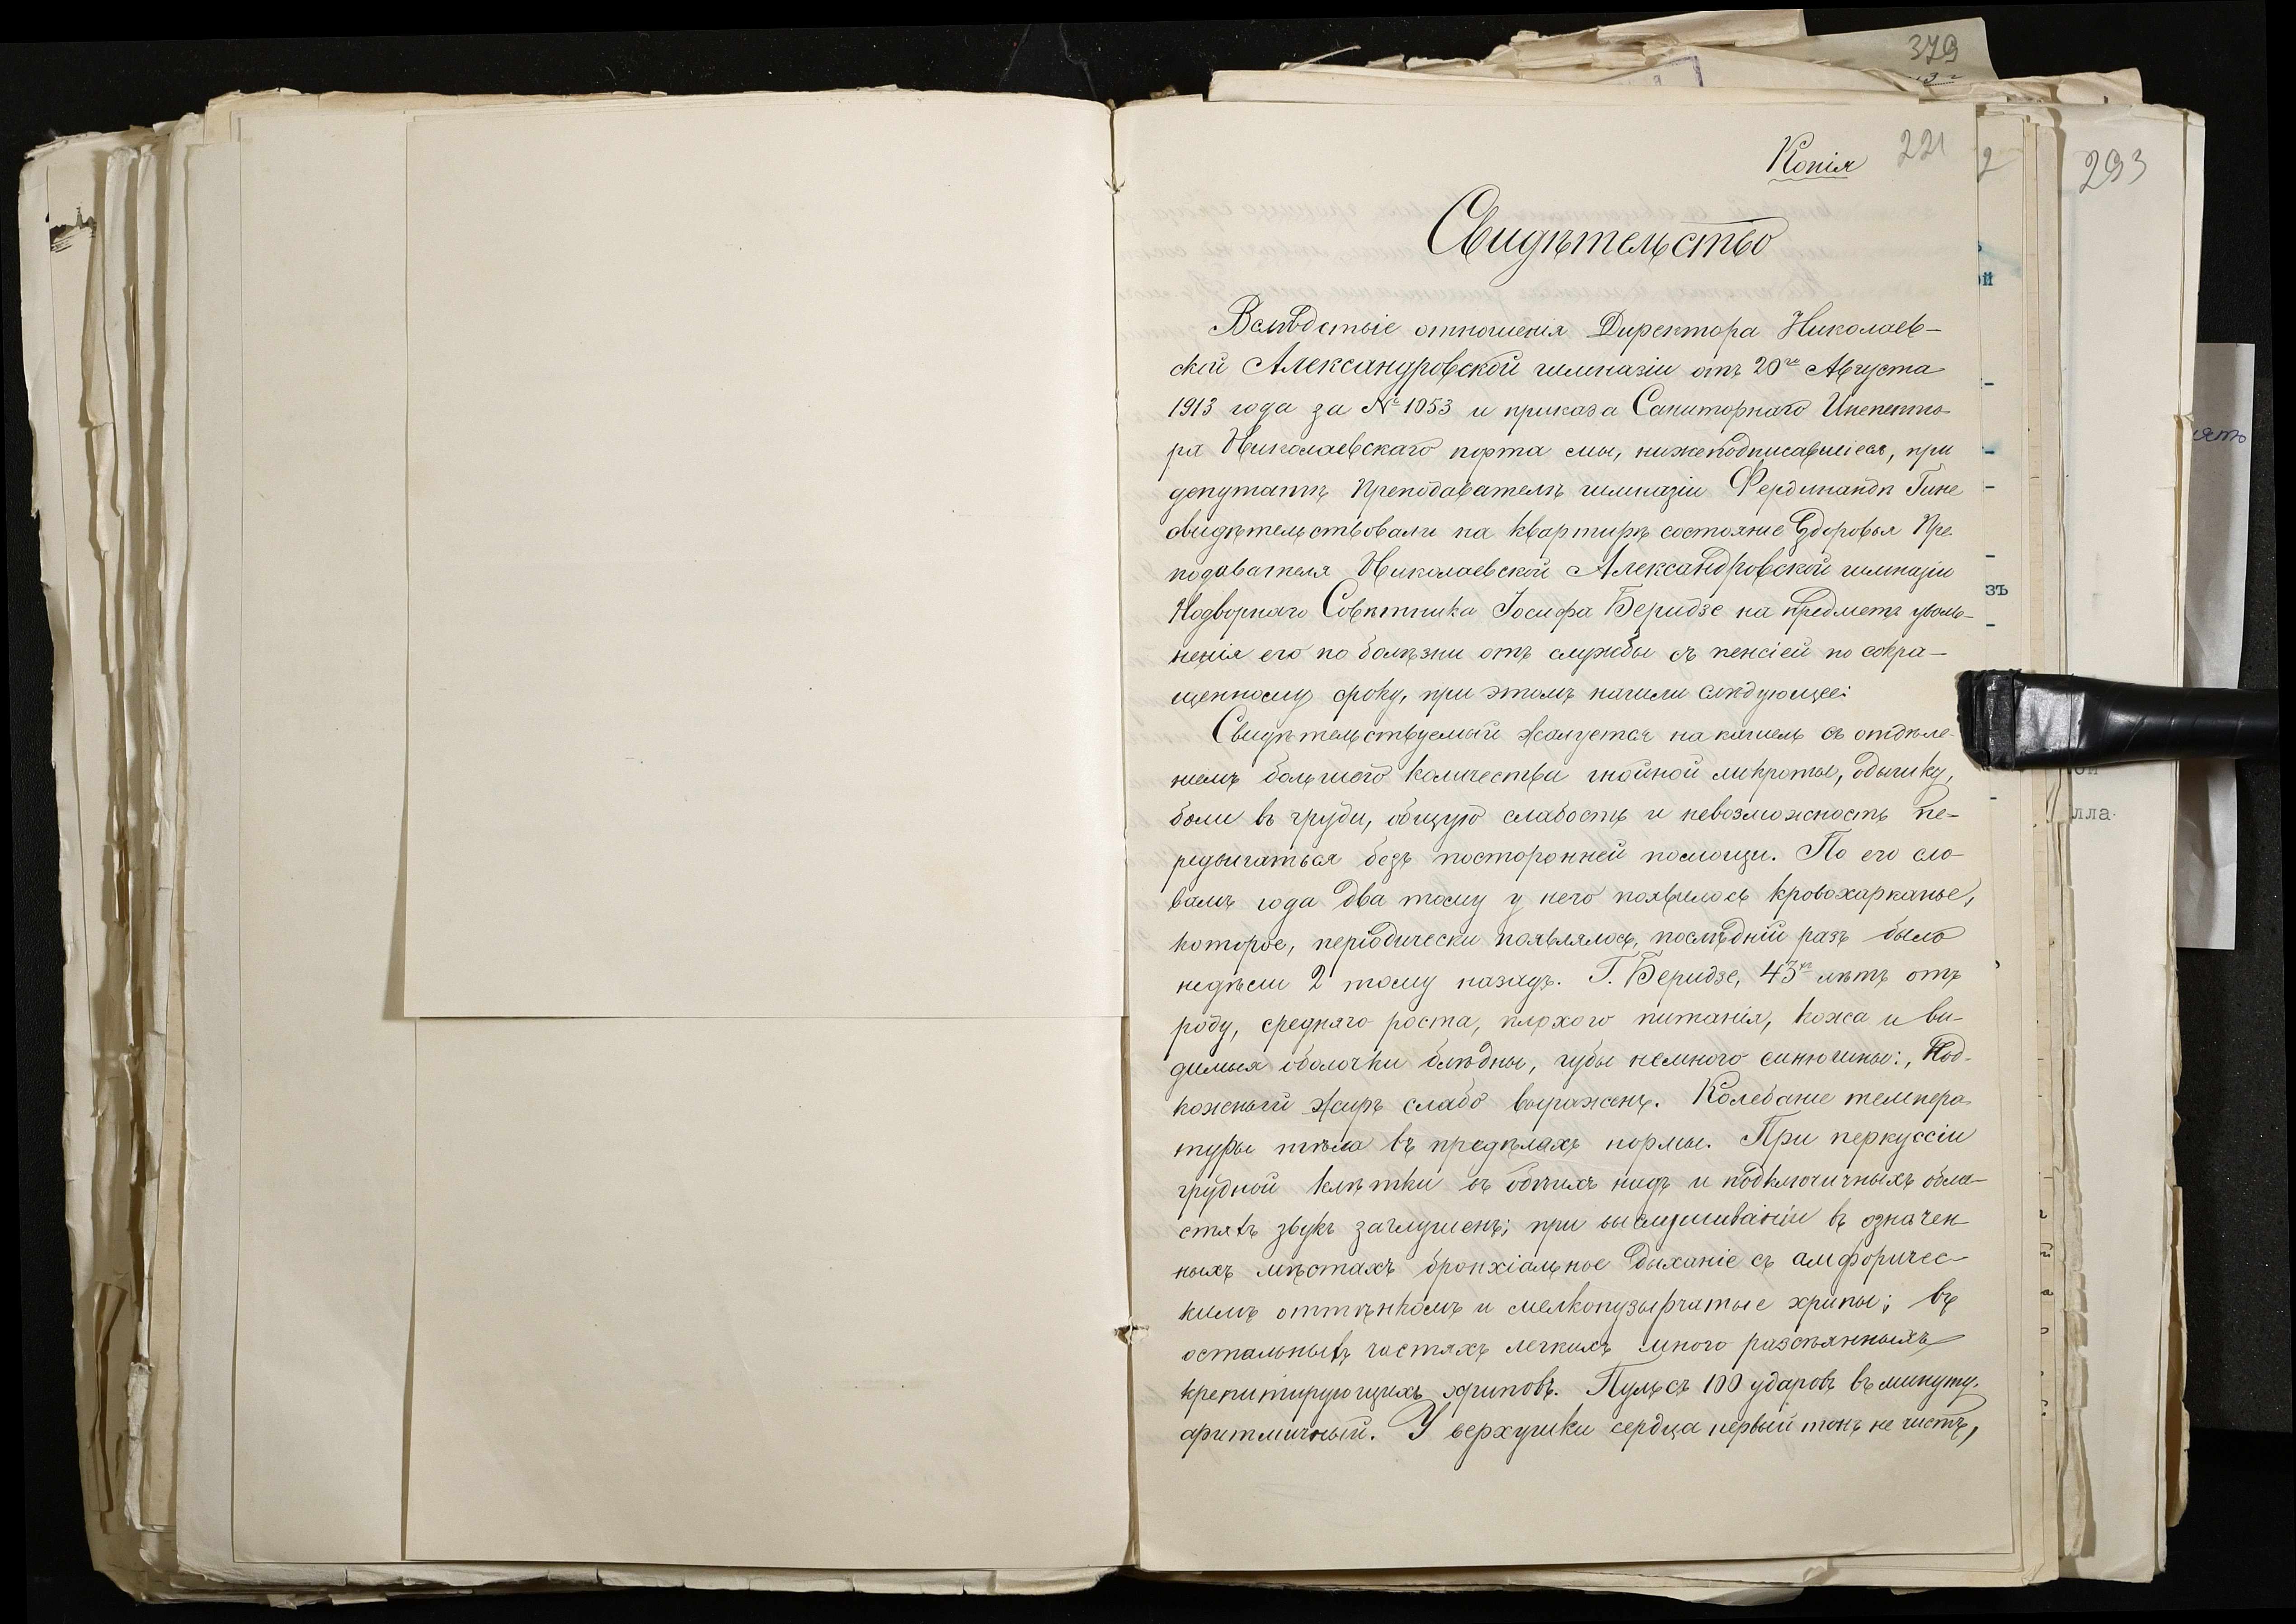 379
293
221
Копія
Свидѣтельство
Вслѣдствіе отношенія Директора Николаев-
ской Александровской гимназіи отъ 20го Августа
1913 года за № 1053 и приказа Санитарнаго Инспекто-
ра Николаевскаго порта мы, нижеподписавшіеся, при
депутатѣ Преподавателѣ гимназіи Фердинандѣ Гине
свидѣтельствовали на квартирѣ состояніе здоровья Пре
подавателя Николаевской Александровской гимназіи
Надворнаго Совѣтника Іосифа Беридзе на предметъ уволь-
ненія его по болѣзни отъ службы съ пенсіей по сокра-
щенному сроку, при этомъ нашли слѣдующее:
Свидѣтельствуемый жалуется на кашель съ отдѣле-
ніемъ большого количества гнойной мокроты, одышку,
боли въ груди, общую слабость и невозможность пе-
редвигаться безъ посторонней помощи. По его сло-
вамъ года два тому у него появилось кровохарканье,
которое, періодически появлялось, послѣдній разъ было
недѣли 2 тому назадъ. Г. Беридзе, 43х лѣтъ отъ
роду, средняго роста, плохого питанія, кожа и ви-
димыя оболочки блѣдны, губы немного синюшны:, Под-
кожный жиръ слабо выраженъ. Колебаніе темпера
туры тѣла въ предѣлахъ нормы. При перкуссіи
грудной клѣтки въ обѣихъ надъ и подключичныхъ обла-
стяхъ звукъ заглушенъ; при выслушиваніи въ означен
ныхъ мѣстахъ бронхіальное дыханіе съ амфоричес-
кимъ оттѣнкомъ и мелкопузырчатые хрипы; въ
остальныхъ частяхъ легкихъ много разсѣянныхъ
крепитирующихъ хриповъ. Пульсъ 100 ударовъ въ минуту.
аритмичный. У верхушки сердца первый тонъ не чистъ,